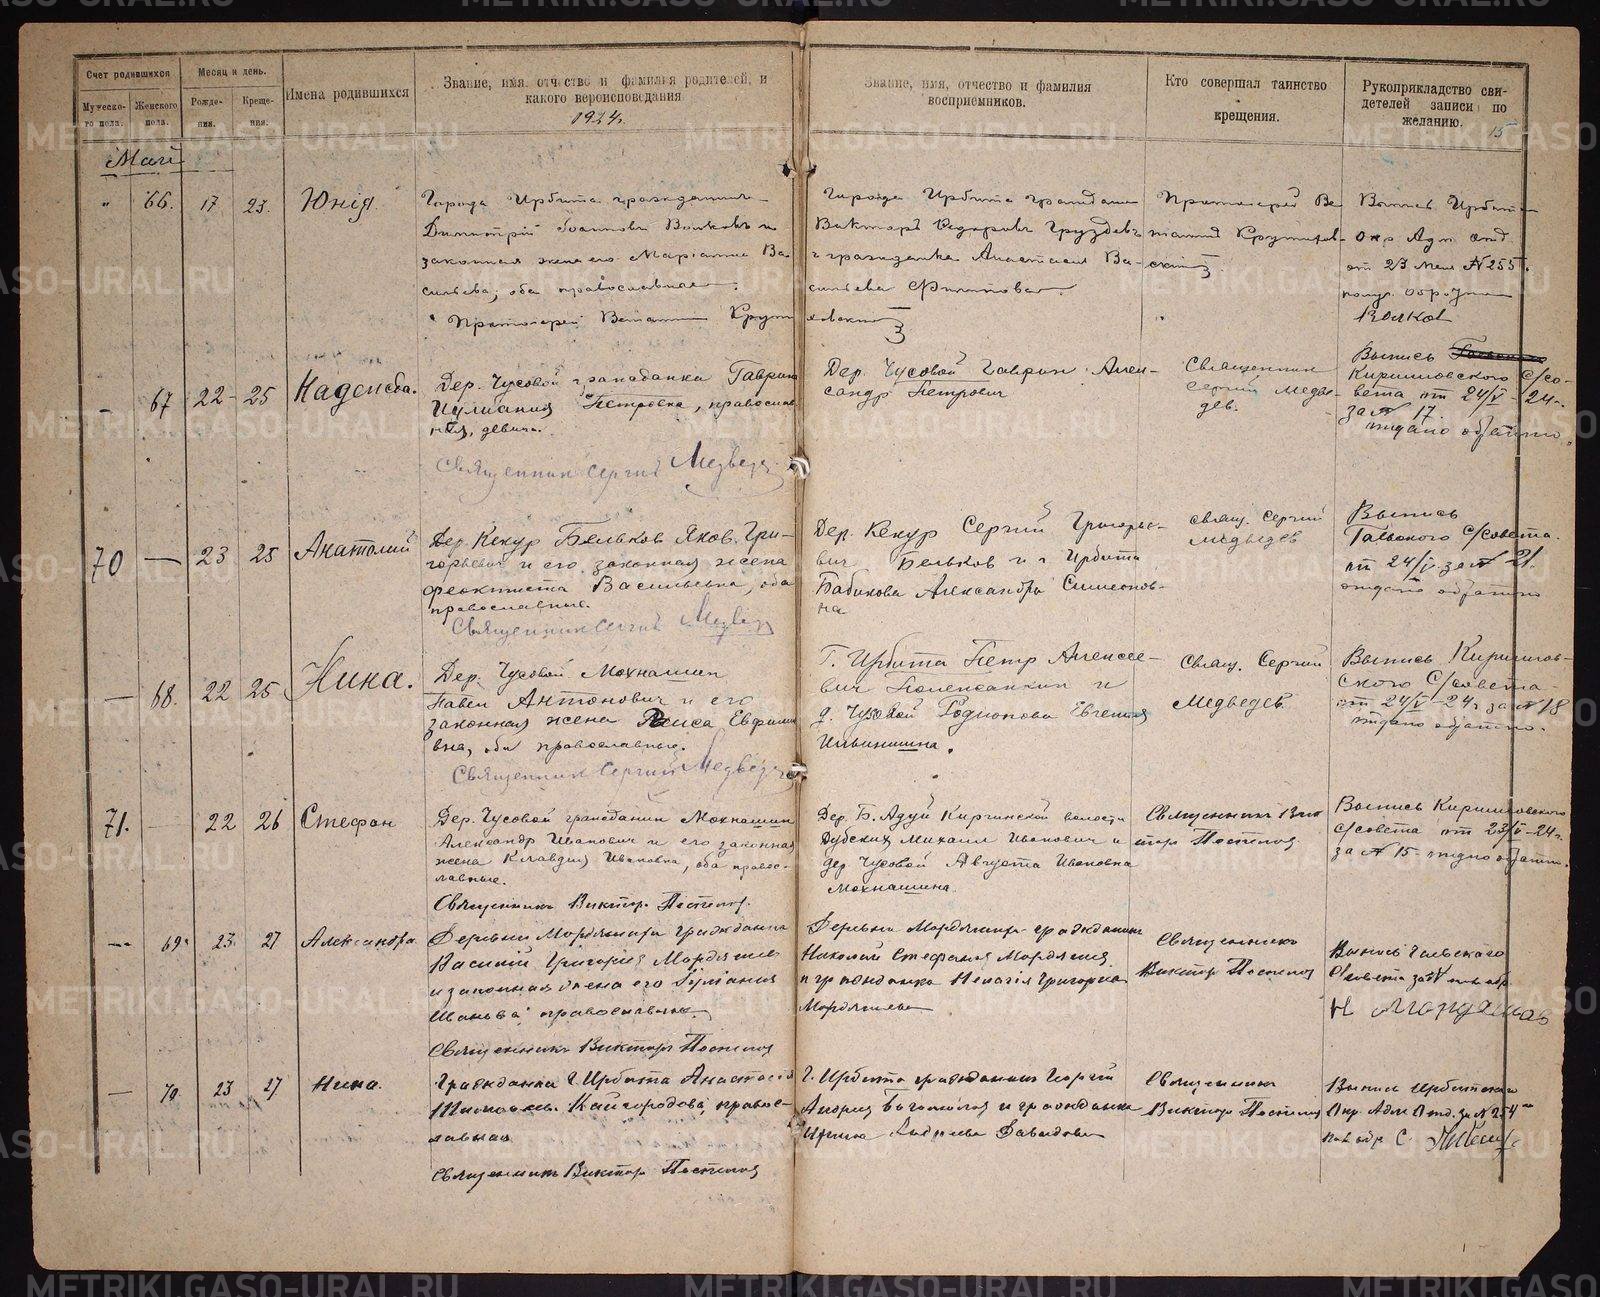 Счет родившихся
Месяц и день.
Имена родившихся
Звание, имя, отчество и фамилия родителей, и какого вероисповедания
1924 г.
Звание, имя, отчество и фамилия восприемников.
Кто совершал таинство крещения.
Рукоприкладство свидетелей записи по желанию.
15
Мужеского пола.
Женского пола.
Рождения.
Крещения.
Май
" 66. 17 23. Юнія
Города Ирбита гражданин
Димитрій Іоаннов Волковъ и
законная жена его Маріанна Ва-
сильева, оба православные.
Протоіерей
города Ирбита гражданин
Викторъ Груздевъ
и гражданка Анастасия Ва-
сильева Филиппова
Протоіерей
Выпись Ирбит
Окр Адм отд
от 23 мая № 255
получ. обратно
Волков
— 67 22 - 25 Надежда.
Дер. Чусовой гражданка Гаврин
Иулиания Петровна, православ
ная, девица.
Священник Сергий Медведев
Дер. Чусовой Гаврин Алек-
сандр Петрович
Священник
Сергий Медве-
дев.
Выпись
Киришовского С/со-
вета от 24/V - 24 г.
за № 17.
отдано обратно.
70 — 23 25 Анатолий
Дер. Кекур Бельков Яков. Гри-
горьевич и его законная жена
Феоктиста Васильевна, оба
православные.
Священник Сергий Медведев
Дер. Кекур Сергий Григорье-
вич Бельков и г Ирбита
Бабикова Александра Симеонов-
на
свящ. Сергий
Медведев
Выпись
Гаевского С/совета.
от 24/V за № 21.
отдано обратно
— 68. 22 25 Нина.
Дер. Чусовой Мохнашин
Павел Антонович и его
законная жена Раиса Евфими
вна, оба православные.
Священник Сергий Медведев
Г. Ирбита Петр Алексее-
вич и
д. Чусовой Родионова Евгения
Ильинишна.
Свящ. Сергий
Медведев
Выпись Киришов-
ского С/совета
от 24/V - 24 г за № 18
отдано обратно.
71. — 22 26 Стефан
Дер. Чусовой гражданин Мохнашин
Александр Иванович и его законная
жена Клавдия Ивановна, оба правос-
лавные.
Священник Виктор Поспелов.
Дер. Б. Адуй Киргинской волости
Дубских Михаил Иванович и
дер Чусовой Августа Ивановна
Мохнашина.
Священник Вик
тор Поспелов
Выпись Киришовского
с/совета от 23/V - 24 г.
за № 15 отдано обратно.
— 69. 23 27 Александра
Деревни Мордяшиха гражданин
Василій Григорьев Мордяшев
и законная жена его Іуліания
православные
Священник Виктор Поспелов
Деревни Мордяшиха гражданин
Николай Стефанов Мордяшев
и гражданка Пелагія Григорьева
Мордяшева
Священник
Виктор Поспелов
Выпись Гаевского
С/совета
Н Мордяшов
— 70. 23 27 Нина.
Гражданка Г. Ирбита Анастасія
Кайгородова, правос-
лавная
Священник Виктор Поспелов
Г. Ирбита гражданин Георгій
Андреев Богомолов и гражданка
Ирина Андреева Давыдова
Священник
Виктор Поспелов
Выпись Ирбитского
Окр Адм Отд. за № 254
пол обр С.
METRIKI.GASO-URAL.RU